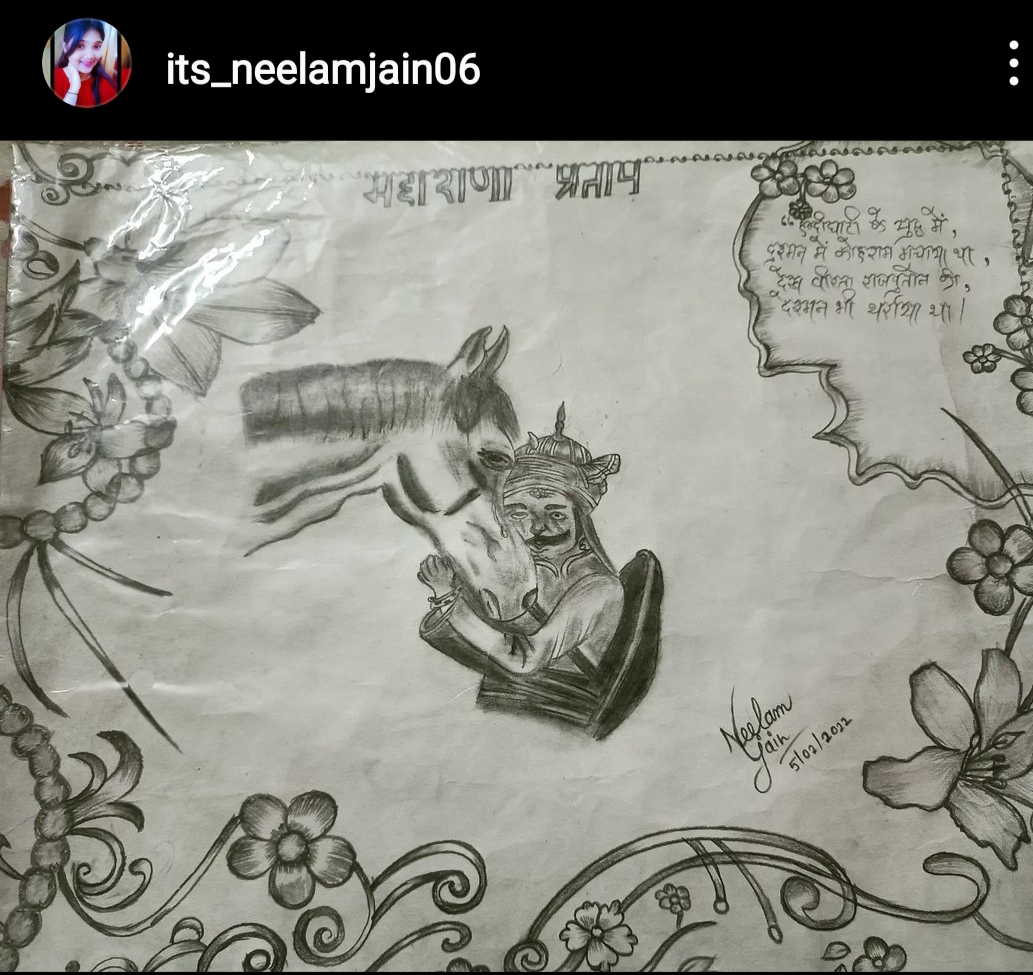 its_neelamjain06
महाराणा प्रताप
“हल्दीघाटी के युद्ध में,
दुश्मन में कोहराम मचाया था,
देख वीरता राजपुतोन की,
दुश्मन भी थर्राया था।
Neelam
Jain
5/02/2022